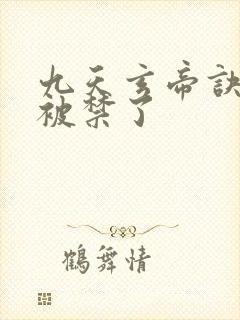 九天玄帝訣
被禁了
鶴舞情